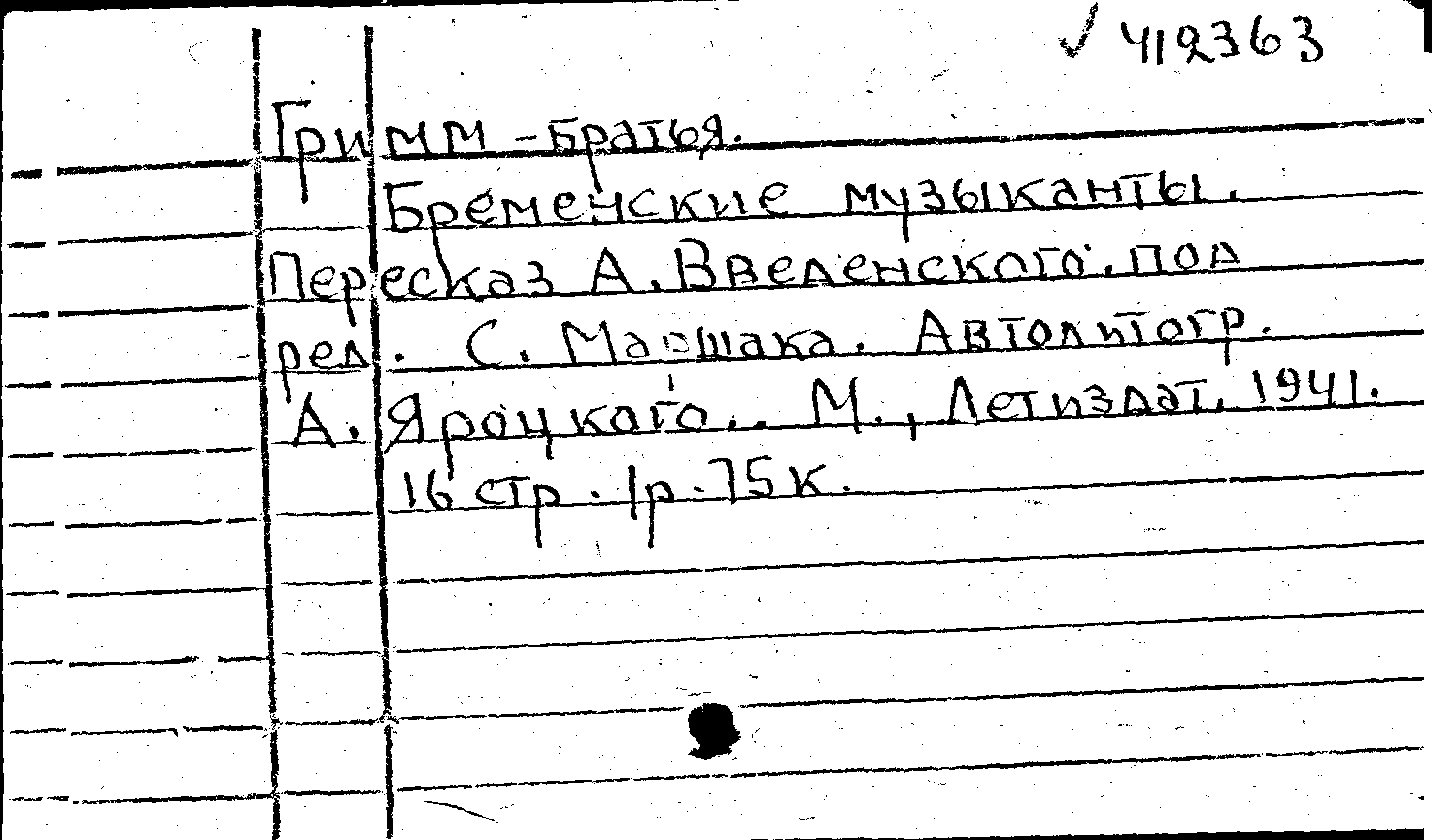 ✓ 412363
Гримм - братья.
Бременские музыканты.
Пересказ А. Введенского. под
ред. С. Маршака. Автолитогр.
А. Яроцкого.. М., Детиздат, 1941.
16 стр. 1р. 75 к.